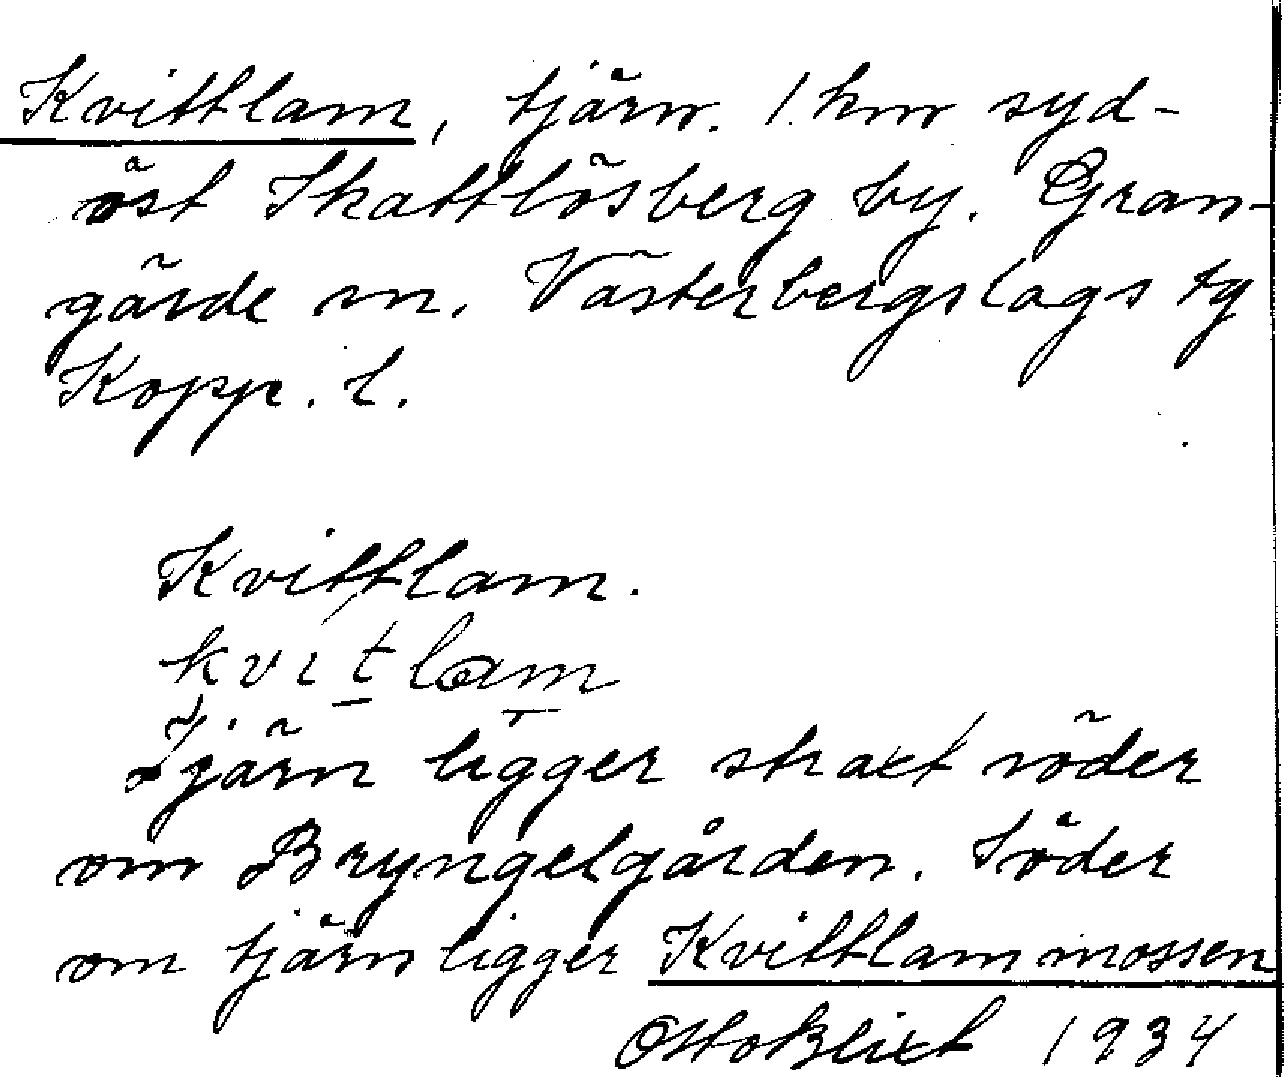 Kvittlam, tjärn. 1. km syd-
öst Skattlösberg by. Gran-
gärde sn. Västerbergslags tg
Kopp. l.
Kvittlam.
kvitlam
Tjärn ligger straxt söder
om Bryngelgården. Söder
om tjärn ligger Kvittlammossen
Otto Blixt 1934